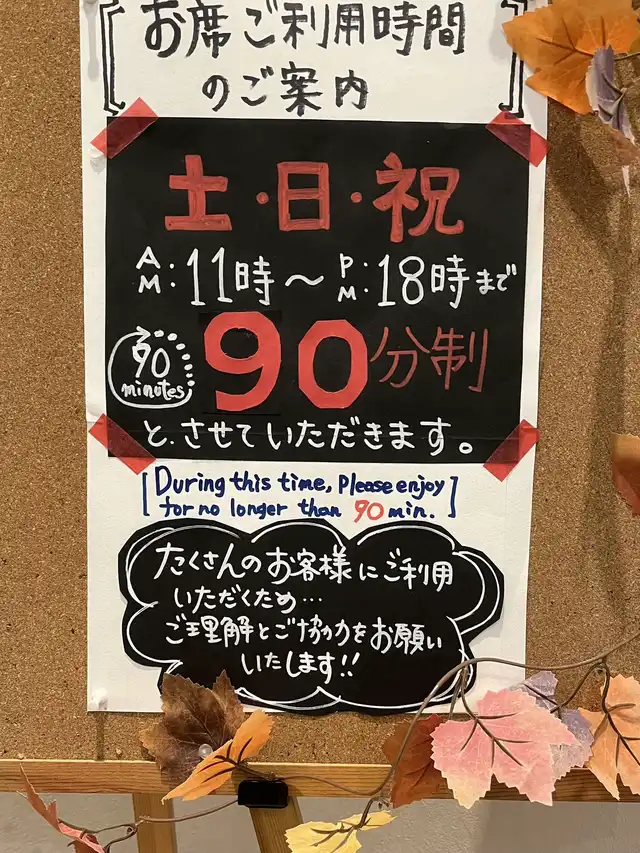 お席ご利用時間
のご案内
土・日・祝
AM:11時～PM:18時まで
90
minutes
90分制
と、させていただきます。
[During this time, Please enjoy
for no longer than 90 min.]
たくさんのお客様にご利用
いただくため…
ご理解とご協力をお願い
いたします!!